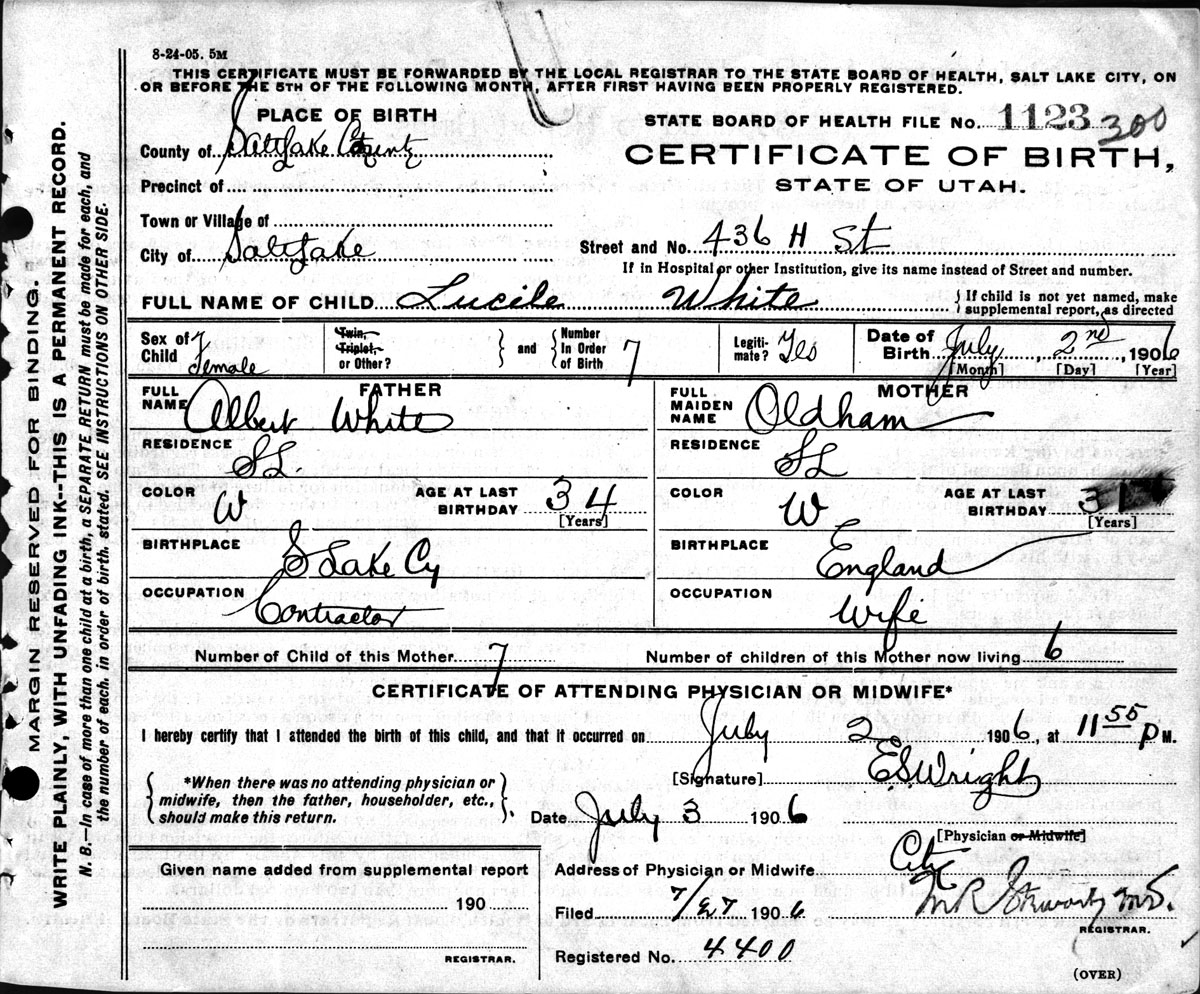 8-24-05. 5M
THIS CERTIFICATE MUST BE FORWARDED BY THE LOCAL REGISTRAR TO THE STATE BOARD OF HEALTH, SALT LAKE CITY, ON
OR BEFORE THE 5TH OF THE FOLLOWING MONTH, AFTER FIRST HAVING BEEN PROPERLY REGISTERED.
PLACE OF BIRTH
STATE BOARD OF HEALTH FILE No. 1123 300
County of Salt Lake County
CERTIFICATE OF BIRTH,
STATE OF UTAH.
Precinct of
Town or Village of
City of Salt Lake
Street and No. 436 H St
If in Hospital or other Institution, give its name instead of Street and number.
FULL NAME OF CHILD Lucile White
If child is not yet named, make
supplemental report, as directed
Sex of
Child Female
Twin,
Triplet,
or Other?
and
Number
In Order
of Birth 7
Legiti-
mate? Yes
Date of
Birth July 2nd 1906
[Month] [Day] [Year]
FATHER
FULL
NAME Albert White
RESIDENCE SL
COLOR W
AGE AT LAST
BIRTHDAY 34
[Years]
BIRTHPLACE S Lake Cy
OCCUPATION Contractor
MOTHER
FULL
MAIDEN
NAME Oldham
RESIDENCE SL
COLOR W
AGE AT LAST
BIRTHDAY 31
[Years]
BIRTHPLACE England
OCCUPATION Wife
Number of Child of this Mother 7
Number of children of this Mother now living 6
CERTIFICATE OF ATTENDING PHYSICIAN OR MIDWIFE*
I hereby certify that I attended the birth of this child, and that it occurred on July 2 1906, at 11 55 P M.
*When there was no attending physician or
midwife, then the father, householder, etc.,
should make this return.
[Signature] E S Wright
Date July 3 1906
[Physician or Midwife]
Given name added from supplemental report
190
REGISTRAR.
Address of Physician or Midwife City
Filed 7/27 1906
M R Stewart M.D.
REGISTRAR.
Registered No. 4400
(OVER)
MARGIN RESERVED FOR BINDING.
WRITE PLAINLY, WITH UNFADING INK--THIS IS A PERMANENT RECORD.
N. B.—In case of more than one child at a birth, a SEPARATE RETURN must be made for each, and
the number of each, in order of birth, stated. SEE INSTRUCTIONS ON OTHER SIDE.